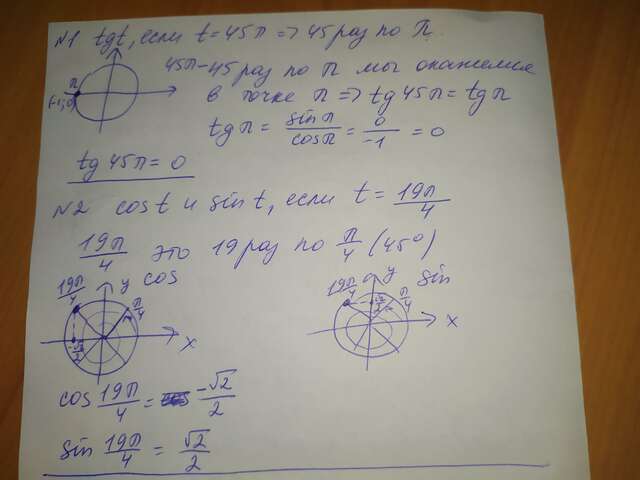 №1 tgt, если t = 45π => 45 раз по π.
45π - 45 раз по π мы окажемся
в точке π => tg 45π = tg π
π
(-1;0)
tg π = sin π / cos π = 0 / -1 = 0
tg 45π = 0
№2 cos t и sin t, если t = 19π/4
19π/4 это 19 раз по π/4 (45°)
19π/4 y cos π/4 x -√2/2
19π/4 y sin π/4 x √2/2
cos 19π/4 = -√2/2
sin 19π/4 = √2/2